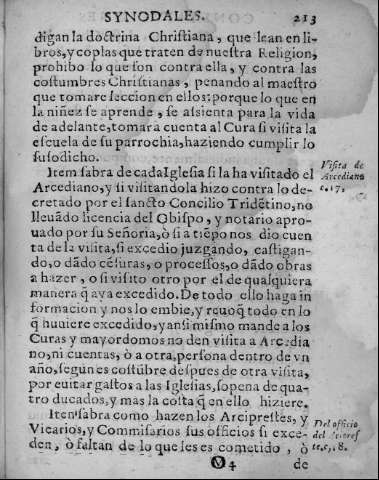 SYNODALES. 213
digan la doctrina Christiana, que lean en li-
bros, y coplas que traten de nuestra Religion,
prohibo lo que son contra ella, y contra las
costumbres Christianas, penando al maestro
que tomare leccion en ellos: porque lo que en
la niñez se aprende, se assienta para la vida
de adelante, tomarà cuenta al Cura si visita la
escuela de su parrochia, haziendo cumplir lo
susodicho.
Item sabra de cada Iglesia si la ha visitado el
Arcediano, y si visitandola hizo contra lo de-
cretado por el sancto Concilio Tridẽtino, no
lleuãdo licencia del Obispo, y notario apro-
uado por su Señoria, ò si a tiẽpo nos dio cuen
ta de la visita, si excedio juzgando, castigan-
do, o dãdo cẽsuras, o processos, o dãdo obras
a hazer, o si visito otro por el de qualquiera
manera q̃ aya excedido. De todo ello haga in
formacion y nos lo embie, y reuoq̃ todo en lo
q̃ huuiere excedido, y ansi mismo mande a los
Curas y mayordomos no den visita a Arcedia
no, ni cuentas, ò a otra, persona dentro de vn
año, segun es costũbre despues de otra visita,
por euitar gastos a las Iglesias, sopena de qua-
tro ducados, y mas la costa q̃ en ello hiziere.
Item sabra como hazen los Arciprestes, y
Vicarios, y Comissarios sus officios si exce-
den, ò faltan de lo que les es cometido, ò
M 4 de
Visita de
Arcediano
c. 17.
Del officio
del Arcipres
te, c, 18.